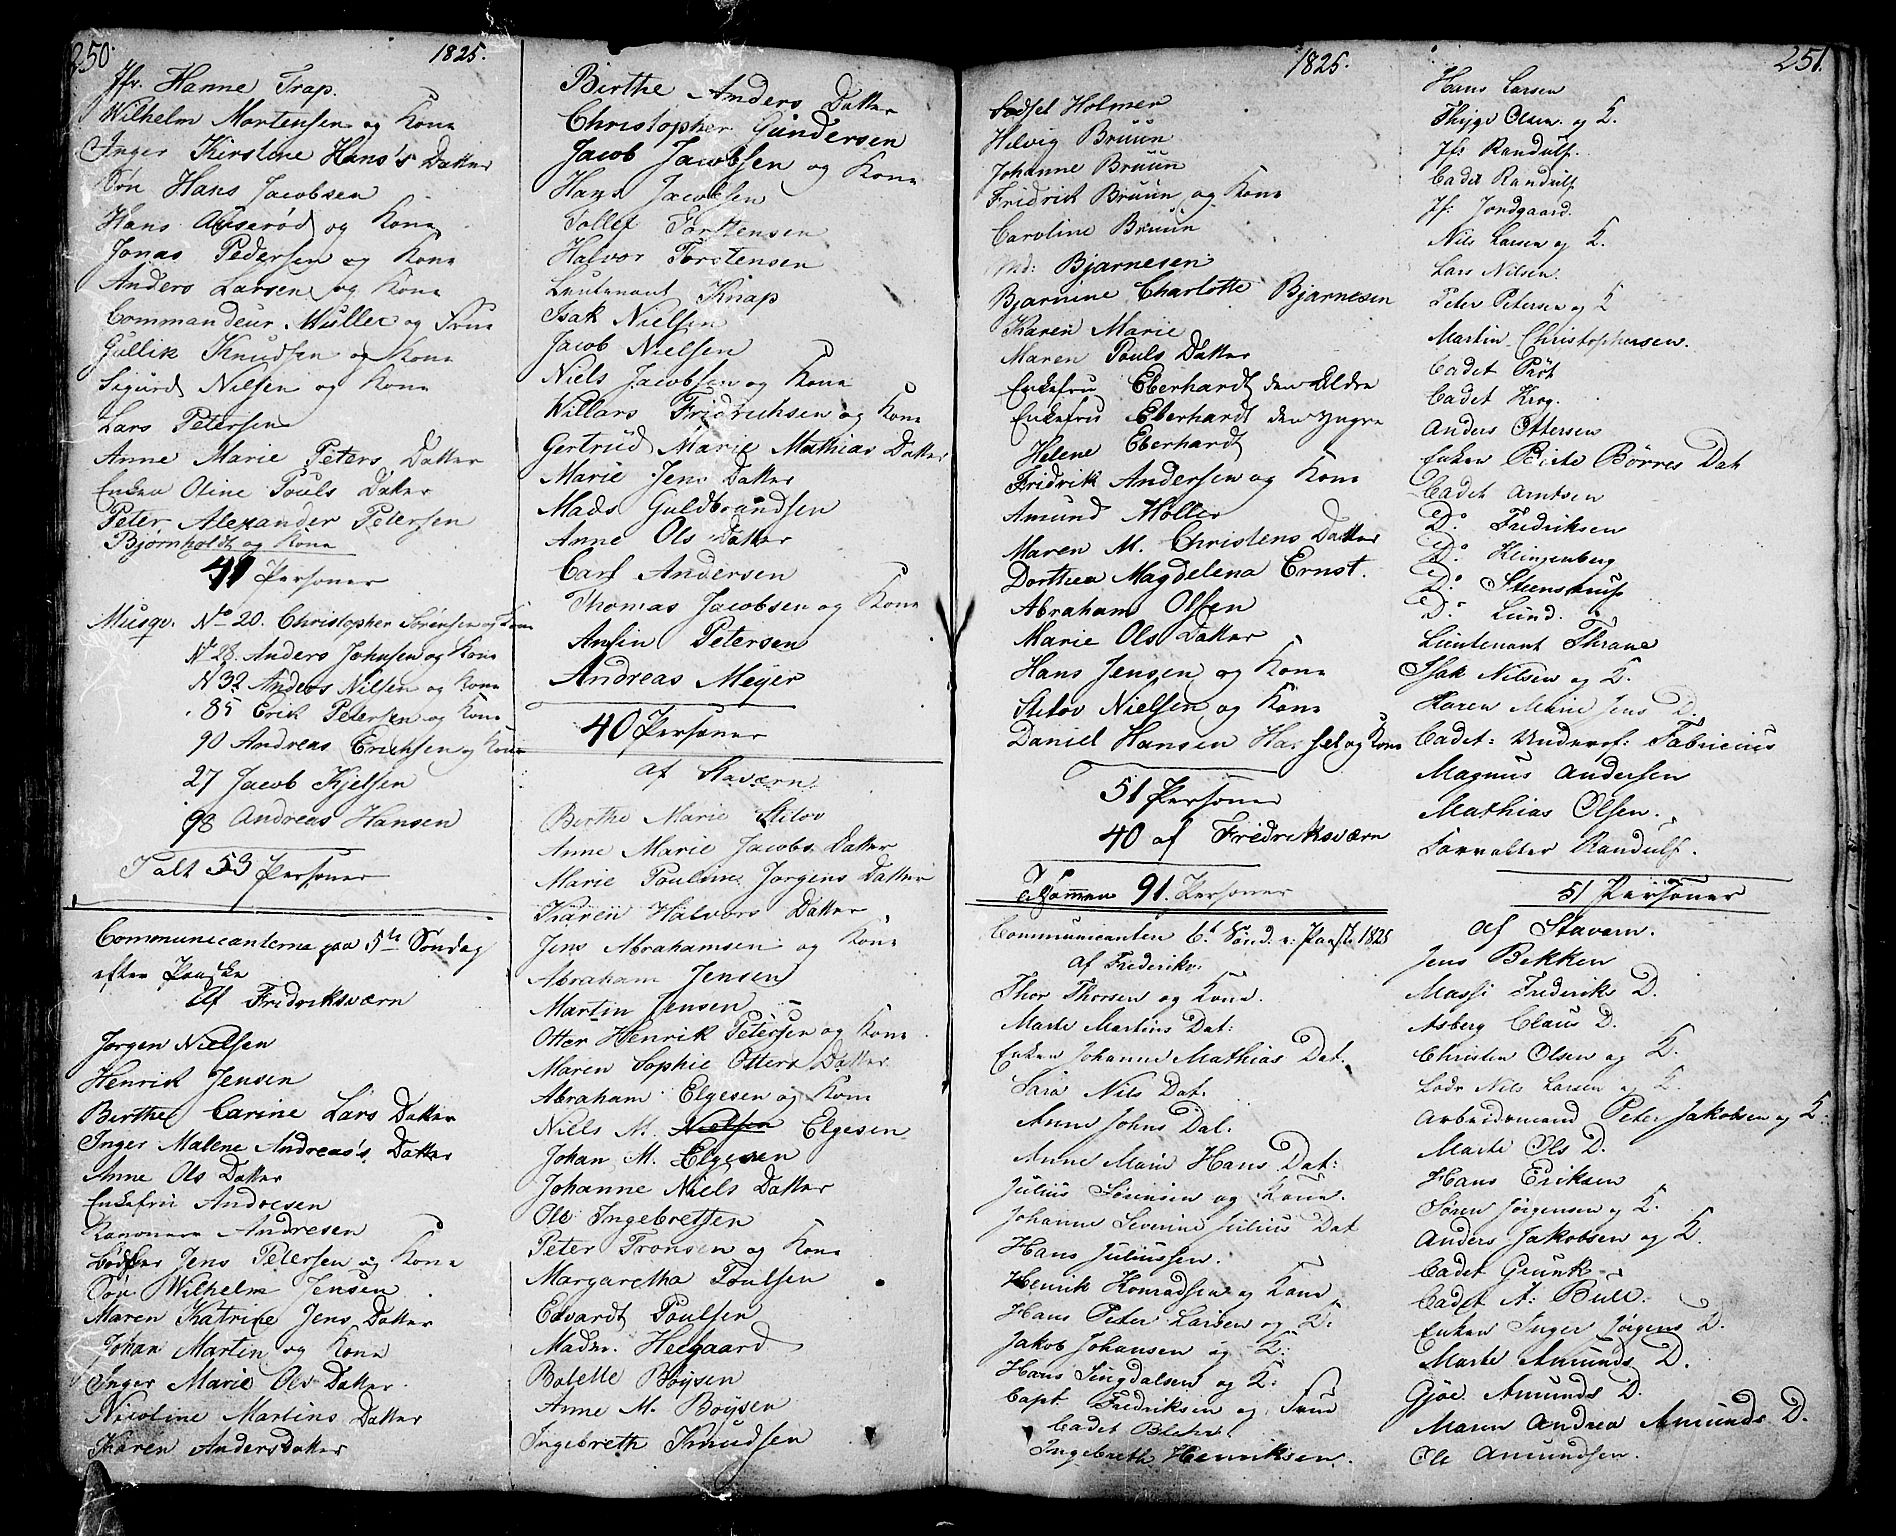 250.
1825.
Jfr. Hanne Trap.
Wilhelm Martensen og Kone
Inger Kirstine Hans's Datter
Søn Hans Jacobsen
Hans Auserød og Kone
Jonas Pedersen og Kone
Anders Larsen og Kone
Commandeur Müller og Frue
Gullik Knudsen og Kone
Sigurd Nilsen og Kone
Lars Petersen
Anne Marie Peters Datter
Enken Oline Pouls Datter
Peter Alexander Petersen
Bjørnholdt og Kone
41 Personer
Musqv. No 20. Christopher Sørensen og Kone
No 28. Anders Johnsen og Kone
N 32 Anders Nilsen og Kone
85 Erik Petersen og Kone
90 Andreas Erichsen og Kone
27 Jacob Kjelsen
98 Andreas Hansen
Talt 53 Personer
Communicanterne paa 5te Søndag
efter Paaske
Af Fridriksværn
Jørgen Nielsen
Henrik Jensen
Berthe Carine Lars Datter
Inger Malene Andreas's Datter
Anne Ols Datter
Enkefru Andresen
Kanoneer Andresen
Bødker Jens Petersen og Kone
Søn Wilhelm Jensen
Maren Katrine Jens Datter
Johan Martin og Kone
Inger Marie Ols Datter
Nicoline Martins Datter
Karen Anders Datter
Birthe Anders Datter
Christopher Gundersen
Jacob Jacobsen og Kone
Hans Jacobsen
Tollef Torstensen
Halvor Torstensen
Lieutenant Knap
Isak Nielsen
Jacob Nielsen
Niels Jacobsen og Kone
Willars Fridrichsen og Kone
Gertrud Marie Mathias Datter
Marie Jens Datter
Mads Guldbrandsen
Anne Ols Datter
Carl Andersen
Thomas Jacobsen og Kone
Anfin Petersen
Andreas Meyer
40 Personer
af Staværn
Berthe Marie Stilov
Anne Marie Jacobs Datter
Marie Pouline Jørgens Datter
Karen Halvors Datter
Jens Abrahamsen og Kone
Abraham Jensen
Martin Jensen
Otter Henrik Petersen og Kone
Maren Sophie Otters Datter
Abraham Elgesen og Kone
Niels M. Nielsen Elgesen
Johan M. Elgesen
Johanne Niels Datter
Ole Ingebretsen
Peter Tronsen og Kone
Margaretha Poulsen
Edvardt Poulsen
Madm. Helgaard
Bolette Boysen
Anne M. Boysen
Ingebreth Knudsen
1825.
251.
Sødsel Holmer
Helvig Bruun
Johanne Bruun
Fridrich Bruun og Kone
Caroline Bruun
Md: Bjarnesen
Bjarnine Charlotte Bjarnesen
Karen Marie
Maren Pouls Datter
Enkefru Eberhardt den Eldre
Enkefru Eberhardt den yngre
Helene Eberhardt
Fridrik Andersen og Kone
Amund Møller
Maren M. Christens Datter
Dorthea Magdelena Ernst.
Abraham Olsen
Marie Ols Datter
Hans Jensen og Kone
Stilov Nielsen og Kone
Daniel Hansen Harsel og Kone
51 Personer
40 af Fridriksværn
Tilsammen 91. Personer
Communicanter 6t Sønd. e: Paaske 1825
af Frederiksv:
Thor Thorsen og Kone.
Marte Martins Dat:
Enken Johanne Mathias Dat.
Sara Nils Dat:
Anne Johns Dat.
Anne Marie Hans Dat:
Julius Sørensen og Kone.
Johanne Severine Julius Dat
Hans Juliussen.
Henrik Konradsen og Kone
Hans Peter Larsen og K:
Jakob Johansen og K:
Hans Lingdalsen og K:
Capt Fredriksen og Frue
Cadet Blehr.
Ingebreth Henriksen.
Hans Larsen
Thyge Olsen og K.
Jf: Randulf.
Cadet Randulf
Jf: Jordgaard.
Nils Larsen og K.
Lars Nilsen
Peter Petersen og K
Martin Christophersen.
Cadet Prøt
Cadet Krog.
Anders Ottersen
Enken Birte Børres Dat
Cadet Arntsen
Do Fredriksen
Do Klingenberg
Do Steenstrup
Do Lund.
Lieutenant Thrane
Isak Nilsen og K.
Karen Marie Jens D.
Cadet: Underof: Fabricius
Magnus Andersen
Mathias Olsen.
Forvalter Randulf.
51 Personer
af Stavern.
Jens Bekken
Massi Frederiks D.
Asberg Claus D.
Christen Olsen og K.
Lods Nils Larsen og K.
Arbeidsmand Peter Jakobsen og K:
Marte Ols D.
Hans Eriksen
Søren Jørgensen og K.
Anders Jakobsen og K.
Cadet Grunk
Cadet A: Bull.
Enken Inger Jørgens D.
Marte Amunds D.
Gjøe Amunds D.
Maren Andrea Amunds D.
Ole Amundsen.